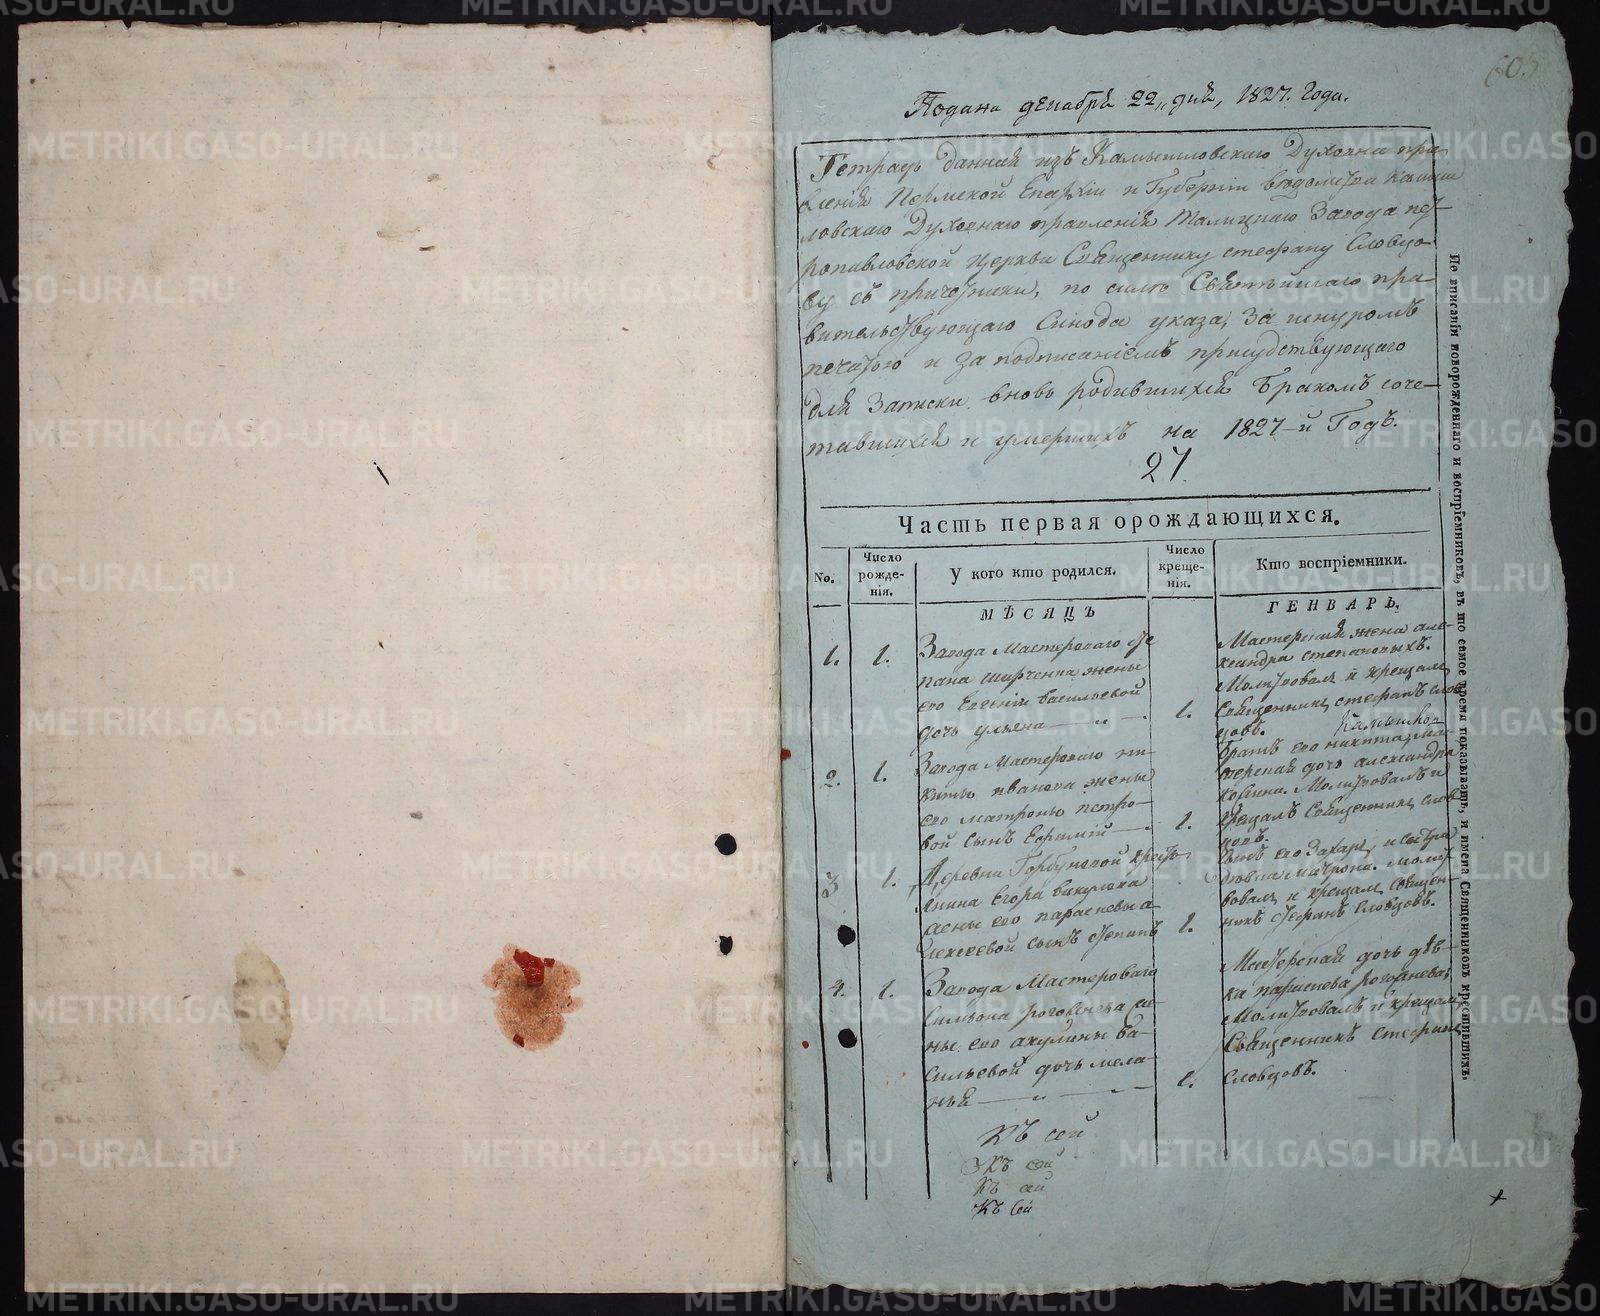 605
Подана декабря 22, дня, 1827. Года.
Тетрадь данная изъ Камышловскаго Духовна пра-
вления Пермской Епархіи и Губерніи вѣдомства Камыш
ловскаго Духовнаго правления Талицкаго Завода пет-
ропавловской Церкви Священнику стефану Словцо-
ву съ причетники, по силѣ Святѣйшаго пра-
вительствующаго Синода указа, За шнуромъ
печатью и За подписаніемъ присудствующаго
для Записки вновь родившихся Бракомъ соче-
тавшихся и умершихъ на 1827-й Годъ.
27.
Часть первая орождающихся.
No.
Число рожде-нія.
У кого кто родился.
Число креще-нія.
Кто воспріемники.
МѢСЯЦЪ
ГЕНВАРЬ.
1. 1.
Завода Мастероваго Сте
пана жены
его Евгении васильевой
дочь ульяна
1.
Мастерская жена але-
ксандра степановыхъ.
Молитвовалъ и крещалъ
Священникъ стефанъ слов
цовъ.
2. 1.
Завода Мастероваго ни-
киты иванова жены
его матроны петро-
вой сынъ Ефимий
1.
Братъ его никита, ма-
стерская дочь александра
Молитвовалъ и
крещалъ Священникъ слов
цовъ.
3 1.
Деревни Горбуновой крестъ
янина Егора викулова
жены его парасковьи а-
лексеевой сынъ Стефанъ
1.
Сынъ его Захаръ, и сестра
матрона. Молит
вовалъ и крещалъ Священ-
никъ Стефанъ Словцовъ.
4. 1.
Завода Мастероваго
Симиона рогожнева же-
ны его акулины ва-
сильевой дочь мела-
нья
1.
Мастерская дочь дѣв-
ка парасковья рогожнева;
Молитвовалъ и крещалъ
Священникъ стефанъ
Словцовъ.
Къ сей
Къ сей
Къ сей
Къ сей
По вписаніи новорожденнаго и воспріемниковъ, въ то самое время показывать, и имена Священниковъ крестившихъ.
METRIKI.GASO-URAL.RU